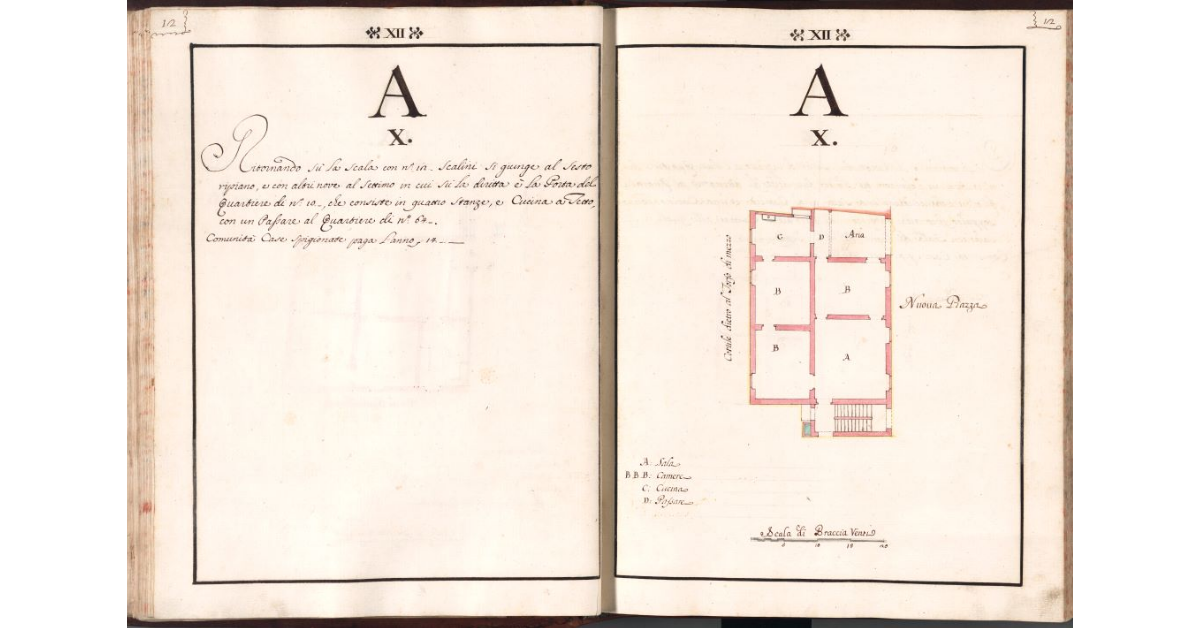 12
XII
A
X.
Ritornando sù la Scala con nº. 10. Scalini si giunge al Sesto
ripiano, e con altri nove al Settimo in cui sù la diritta è la Porta del
Quartiere di nº. 10., che consiste in quattro Stanze, e Cucina à Tetto,
con un Passare al Quartiere di nº. 64.
Comunità Case Spigionate paga L'anno
12
XII
A
X.
C
D
Aria
B
B
B
A
Cortile dietro al di mezzo
Nuova Piazza
A: Sala
B.B.B: Camere
C: Cucina
D: Passare
Scala di Braccia Venti